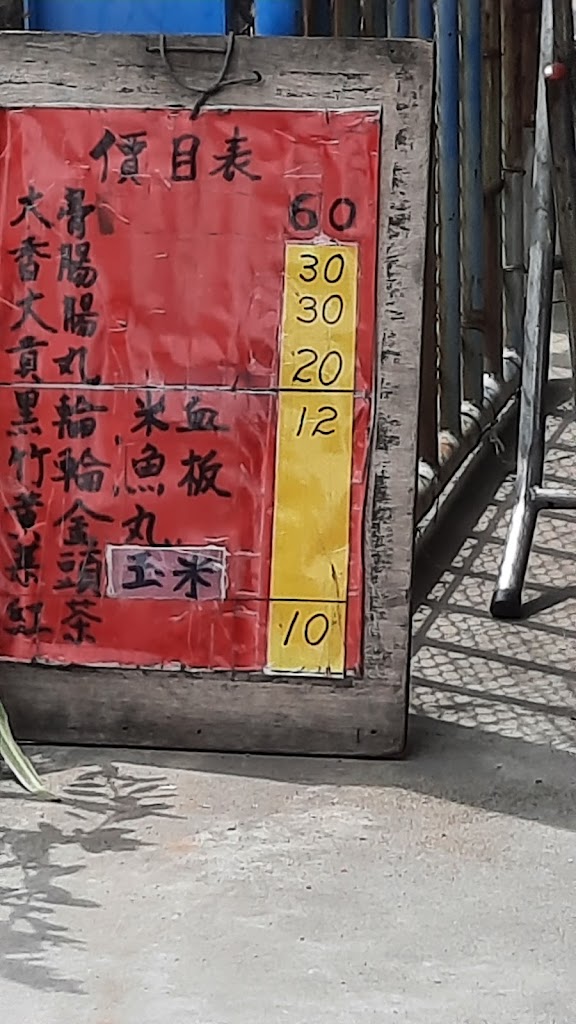 價目表
大骨 60
香腸 30
大腸 30
貢丸 20
黑輪、米血 12
竹輪、魚板
黃金丸、
菜頭 玉米
紅茶 10